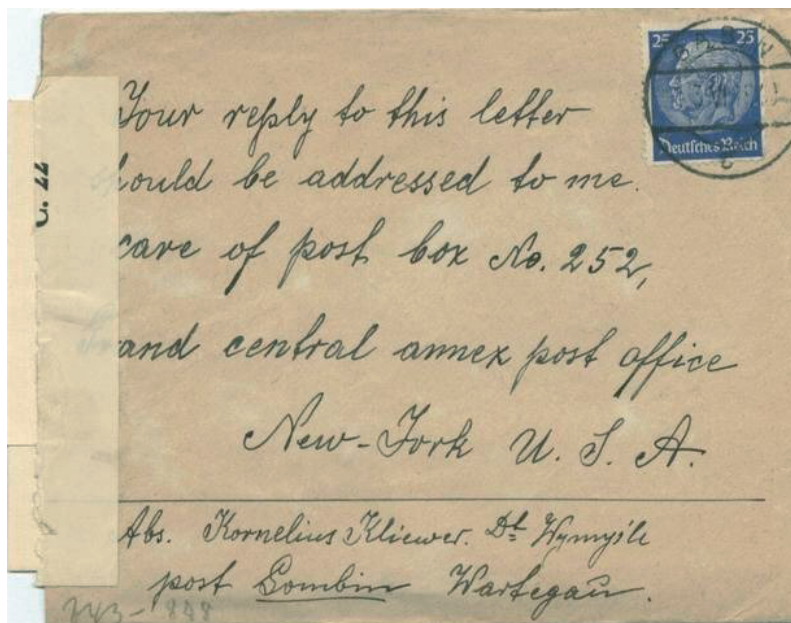 25 25
Deutsches Reich
C. 22
Your reply to this letter
should be addressed to me.
care of post box No. 252,
Grand central annex post office
New-York U. S. A.
Abs. Kornelius Kliewer. Dt Wymysle
post Gombin Wartegau.
243-848